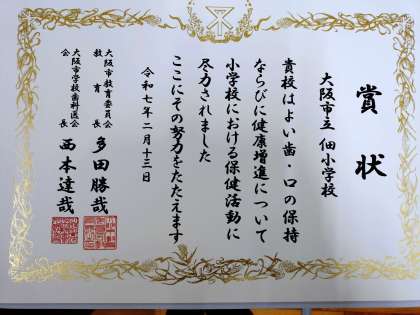 賞状
大阪市立 佃小学校
貴校はよい歯・口の保持
ならびに健康増進について
小学校における保健活動に
尽力されました
ここにその努力をたたえます
令和七年二月十三日
大阪市教育委員会
教育長 多田勝哉
大阪市学校歯科医会
会長 西本達哉